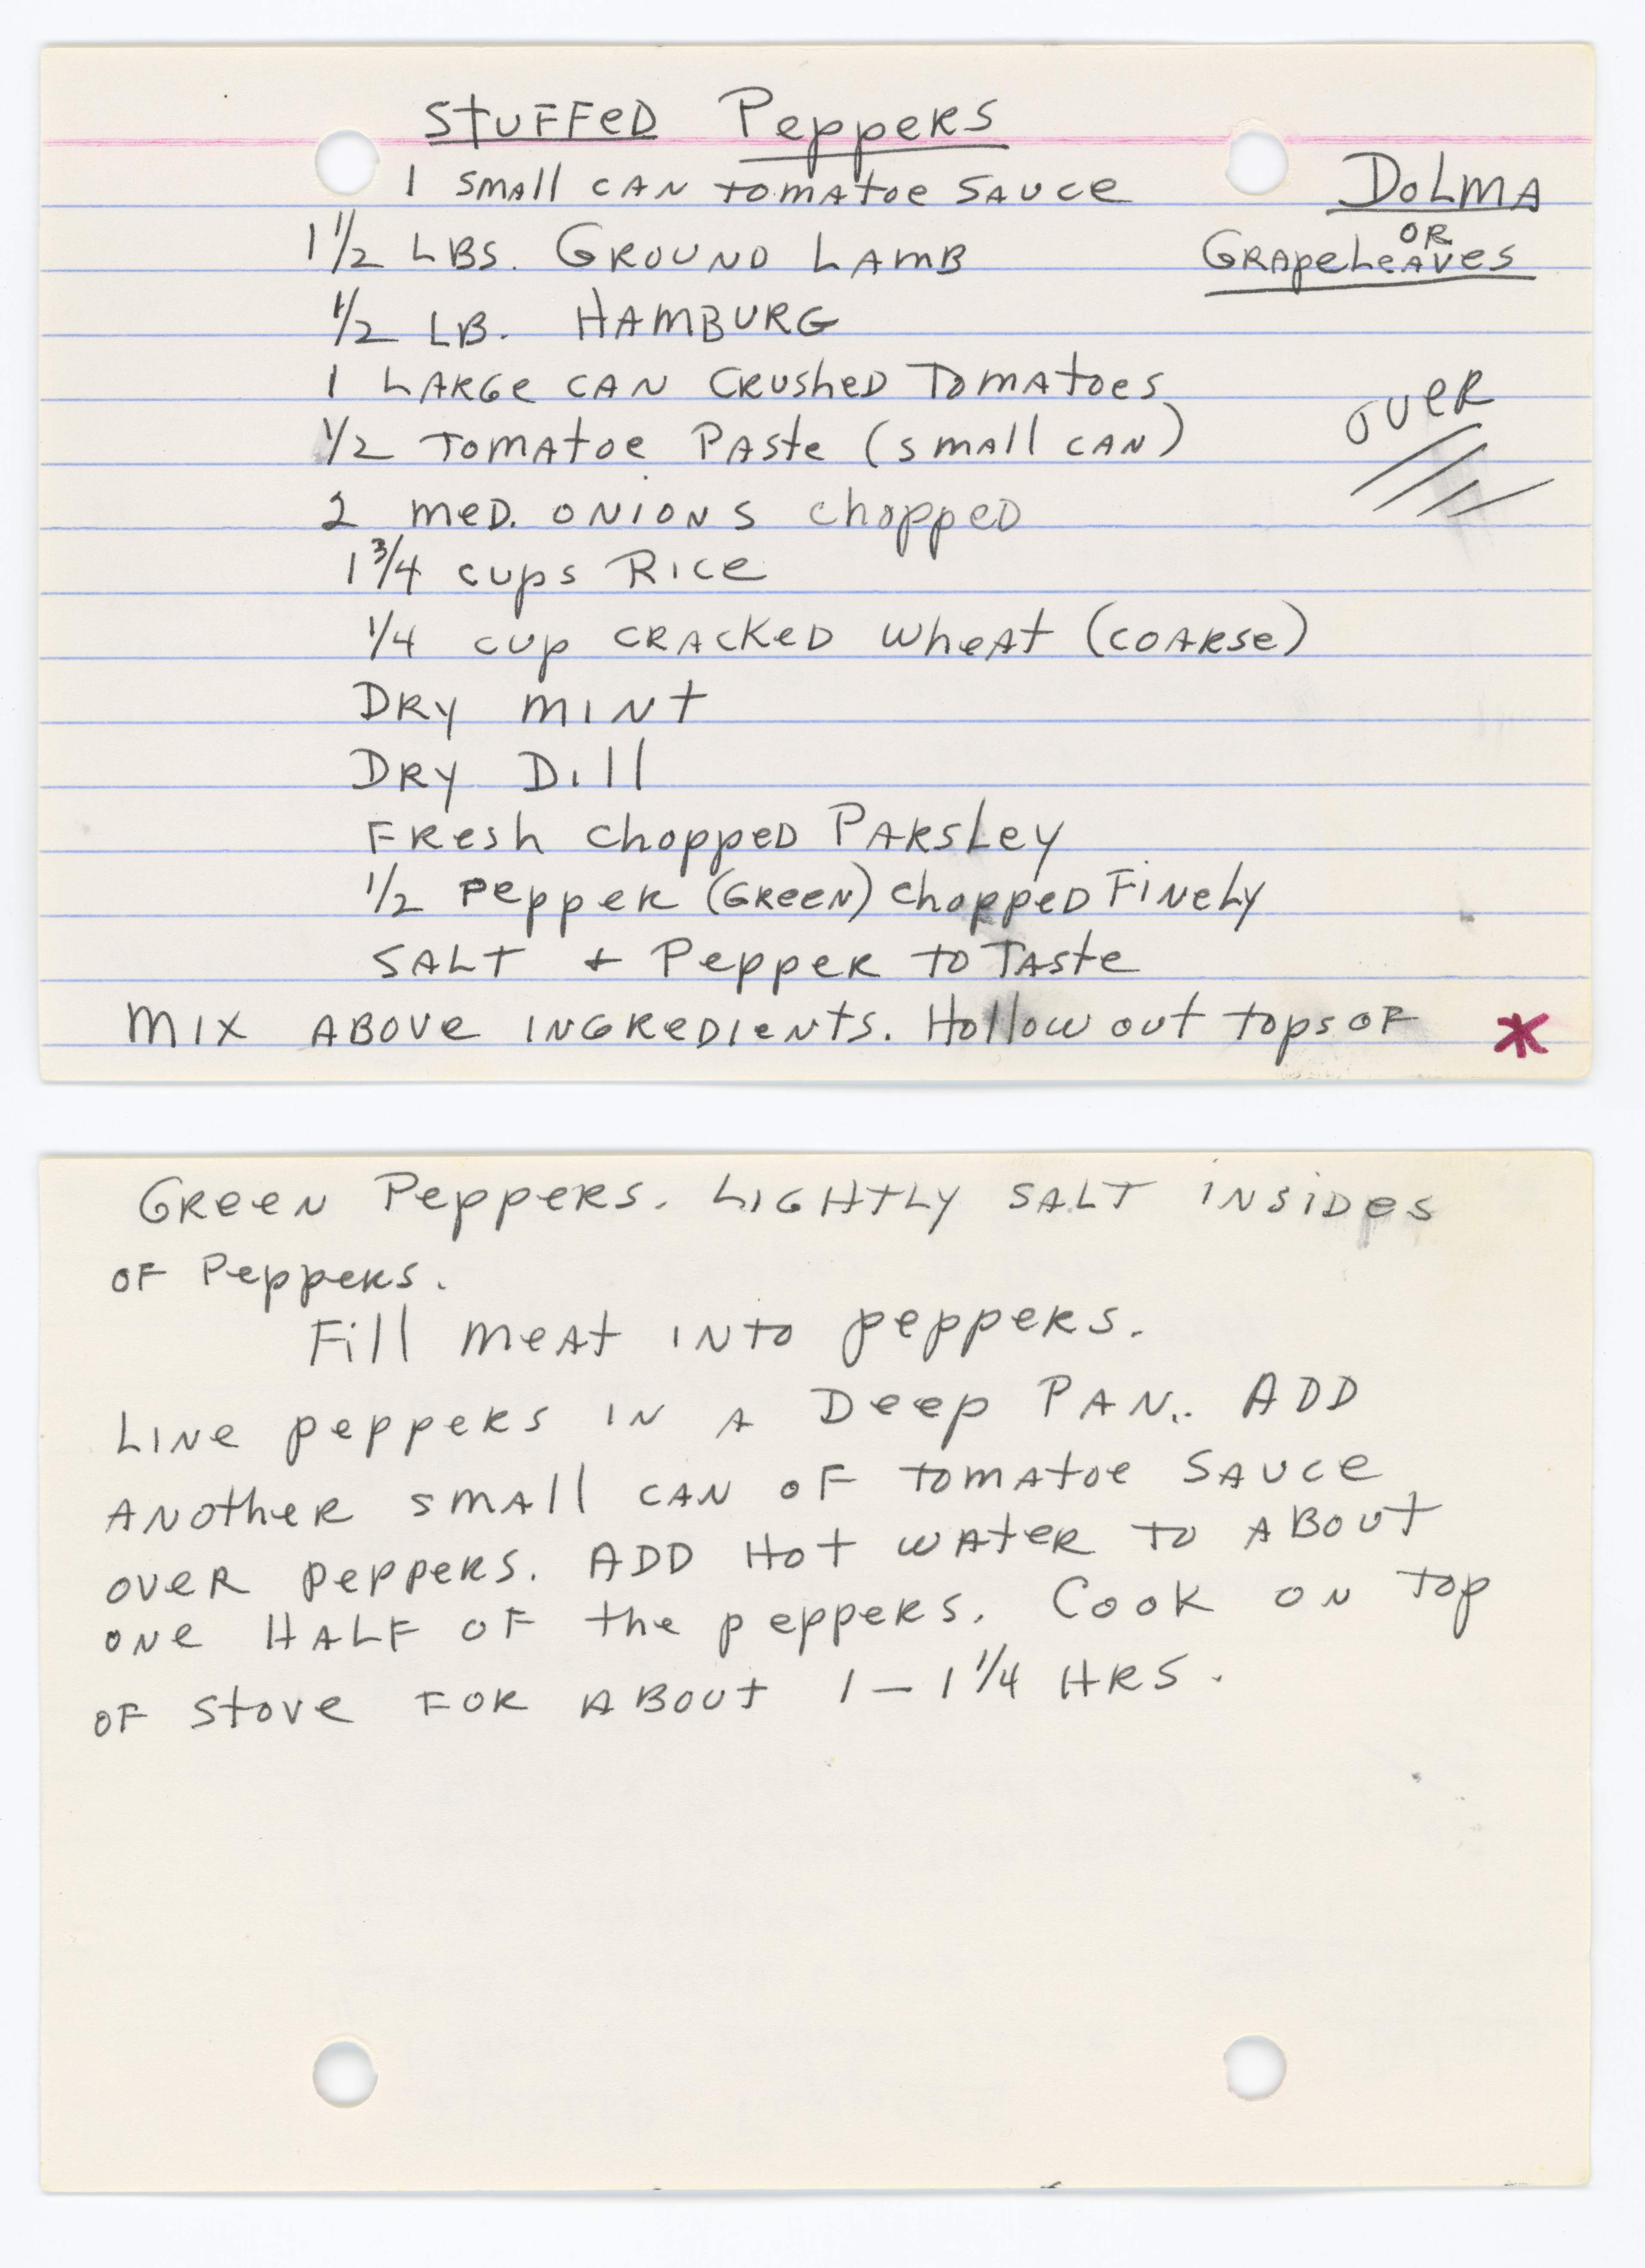 STUFFED PEPPERS
1 SMALL CAN TOMATOE SAUCE
DOLMA
OR
GRAPELEAVES
1 1/2 LBS. GROUND LAMB
1/2 LB. HAMBURG
1 LARGE CAN CRUSHED TOMATOES
OVER
1/2 TOMATOE PASTE (SMALL CAN)
2 MED. ONIONS chopped
1 3/4 cups RICE
1/4 cup CRACKED WHEAT (COARSE)
DRY MINT
DRY DILL
FRESH CHOPPED PARSLEY
1/2 PEPPER (GREEN) CHOPPED FINELY
SALT + PEPPER TO TASTE
MIX ABOVE INGREDIENTS. HOLLOW OUT TOPS OF *
GREEN PEPPERS. LIGHTLY SALT INSIDES
OF PEPPERS.
FILL MEAT INTO PEPPERS.
LINE PEPPERS IN A DEEP PAN.. ADD
ANOTHER SMALL CAN OF TOMATOE SAUCE
OVER PEPPERS. ADD HOT WATER TO ABOUT
ONE HALF OF THE PEPPERS. COOK ON TOP
OF STOVE FOR ABOUT 1 – 1 1/4 HRS.